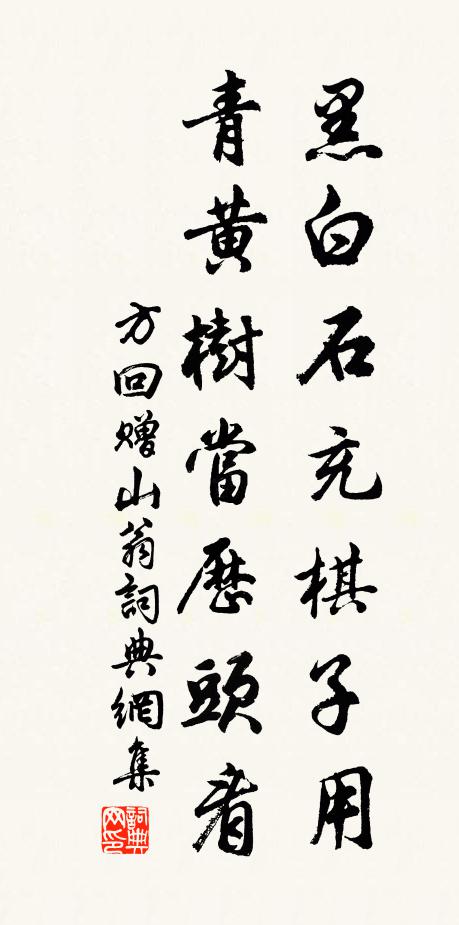 黑白石充棋子用
青黃樹當歷頭看
方回贈山翁詞典網集
詞典網印